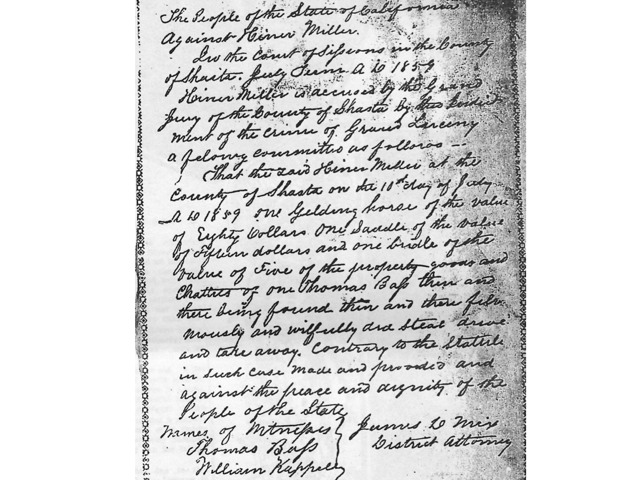 The People of the State of California
Against Hiner Miller.
In the Court of Sessions in the County
of Shasta. July Term A D 1859
Hiner Miller is accused by the Grand
Jury of the County of Shasta by this Indict
ment of the crime of Grand Larceny
a felony committed as follows --
That the said Hiner Miller at the
County of Shasta on the 10th day of July
A D 1859 one Gelding horse of the value
of Eighty Dollars One Saddle of the value
of Fifteen dollars and one bridle of the
value of Five of the property goods and
Chattles of one Thomas Bass then and
there being found then and there felo
niously and wilfully did steal drive
and take away. Contrary to the Statute
in such case made and provided and
against the peace and dignity of the
People of the State
Names of Witnesses
Thomas Bass
William Kappeler
James D Mix
District Attorney